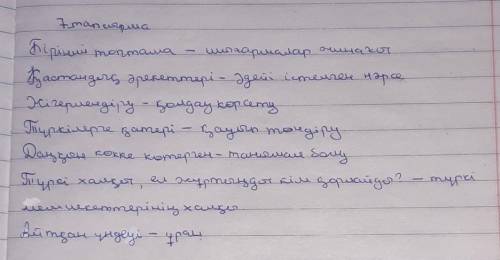 7тапсырма
Бірінші топтама – шығармалар жинағы
Қастандық әрекеттері – әдейі істелген нәрсе
Жігерлендіру – қолдау көрсету
Түркілерге қатері – қауіп төндіру
Даңқын көкке көтерген – танымал болу
Түркі халқы, ел жұртыңды кім қорлайды? – түркі
мемлекеттерінің халқы
Айтқан үндеуі – ұран